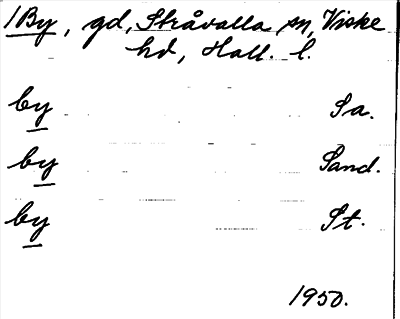 /By, gd, Stråvalla sn, Viske
hd, Hall. l.
by Sa.
by Sand.
by St.
1950.